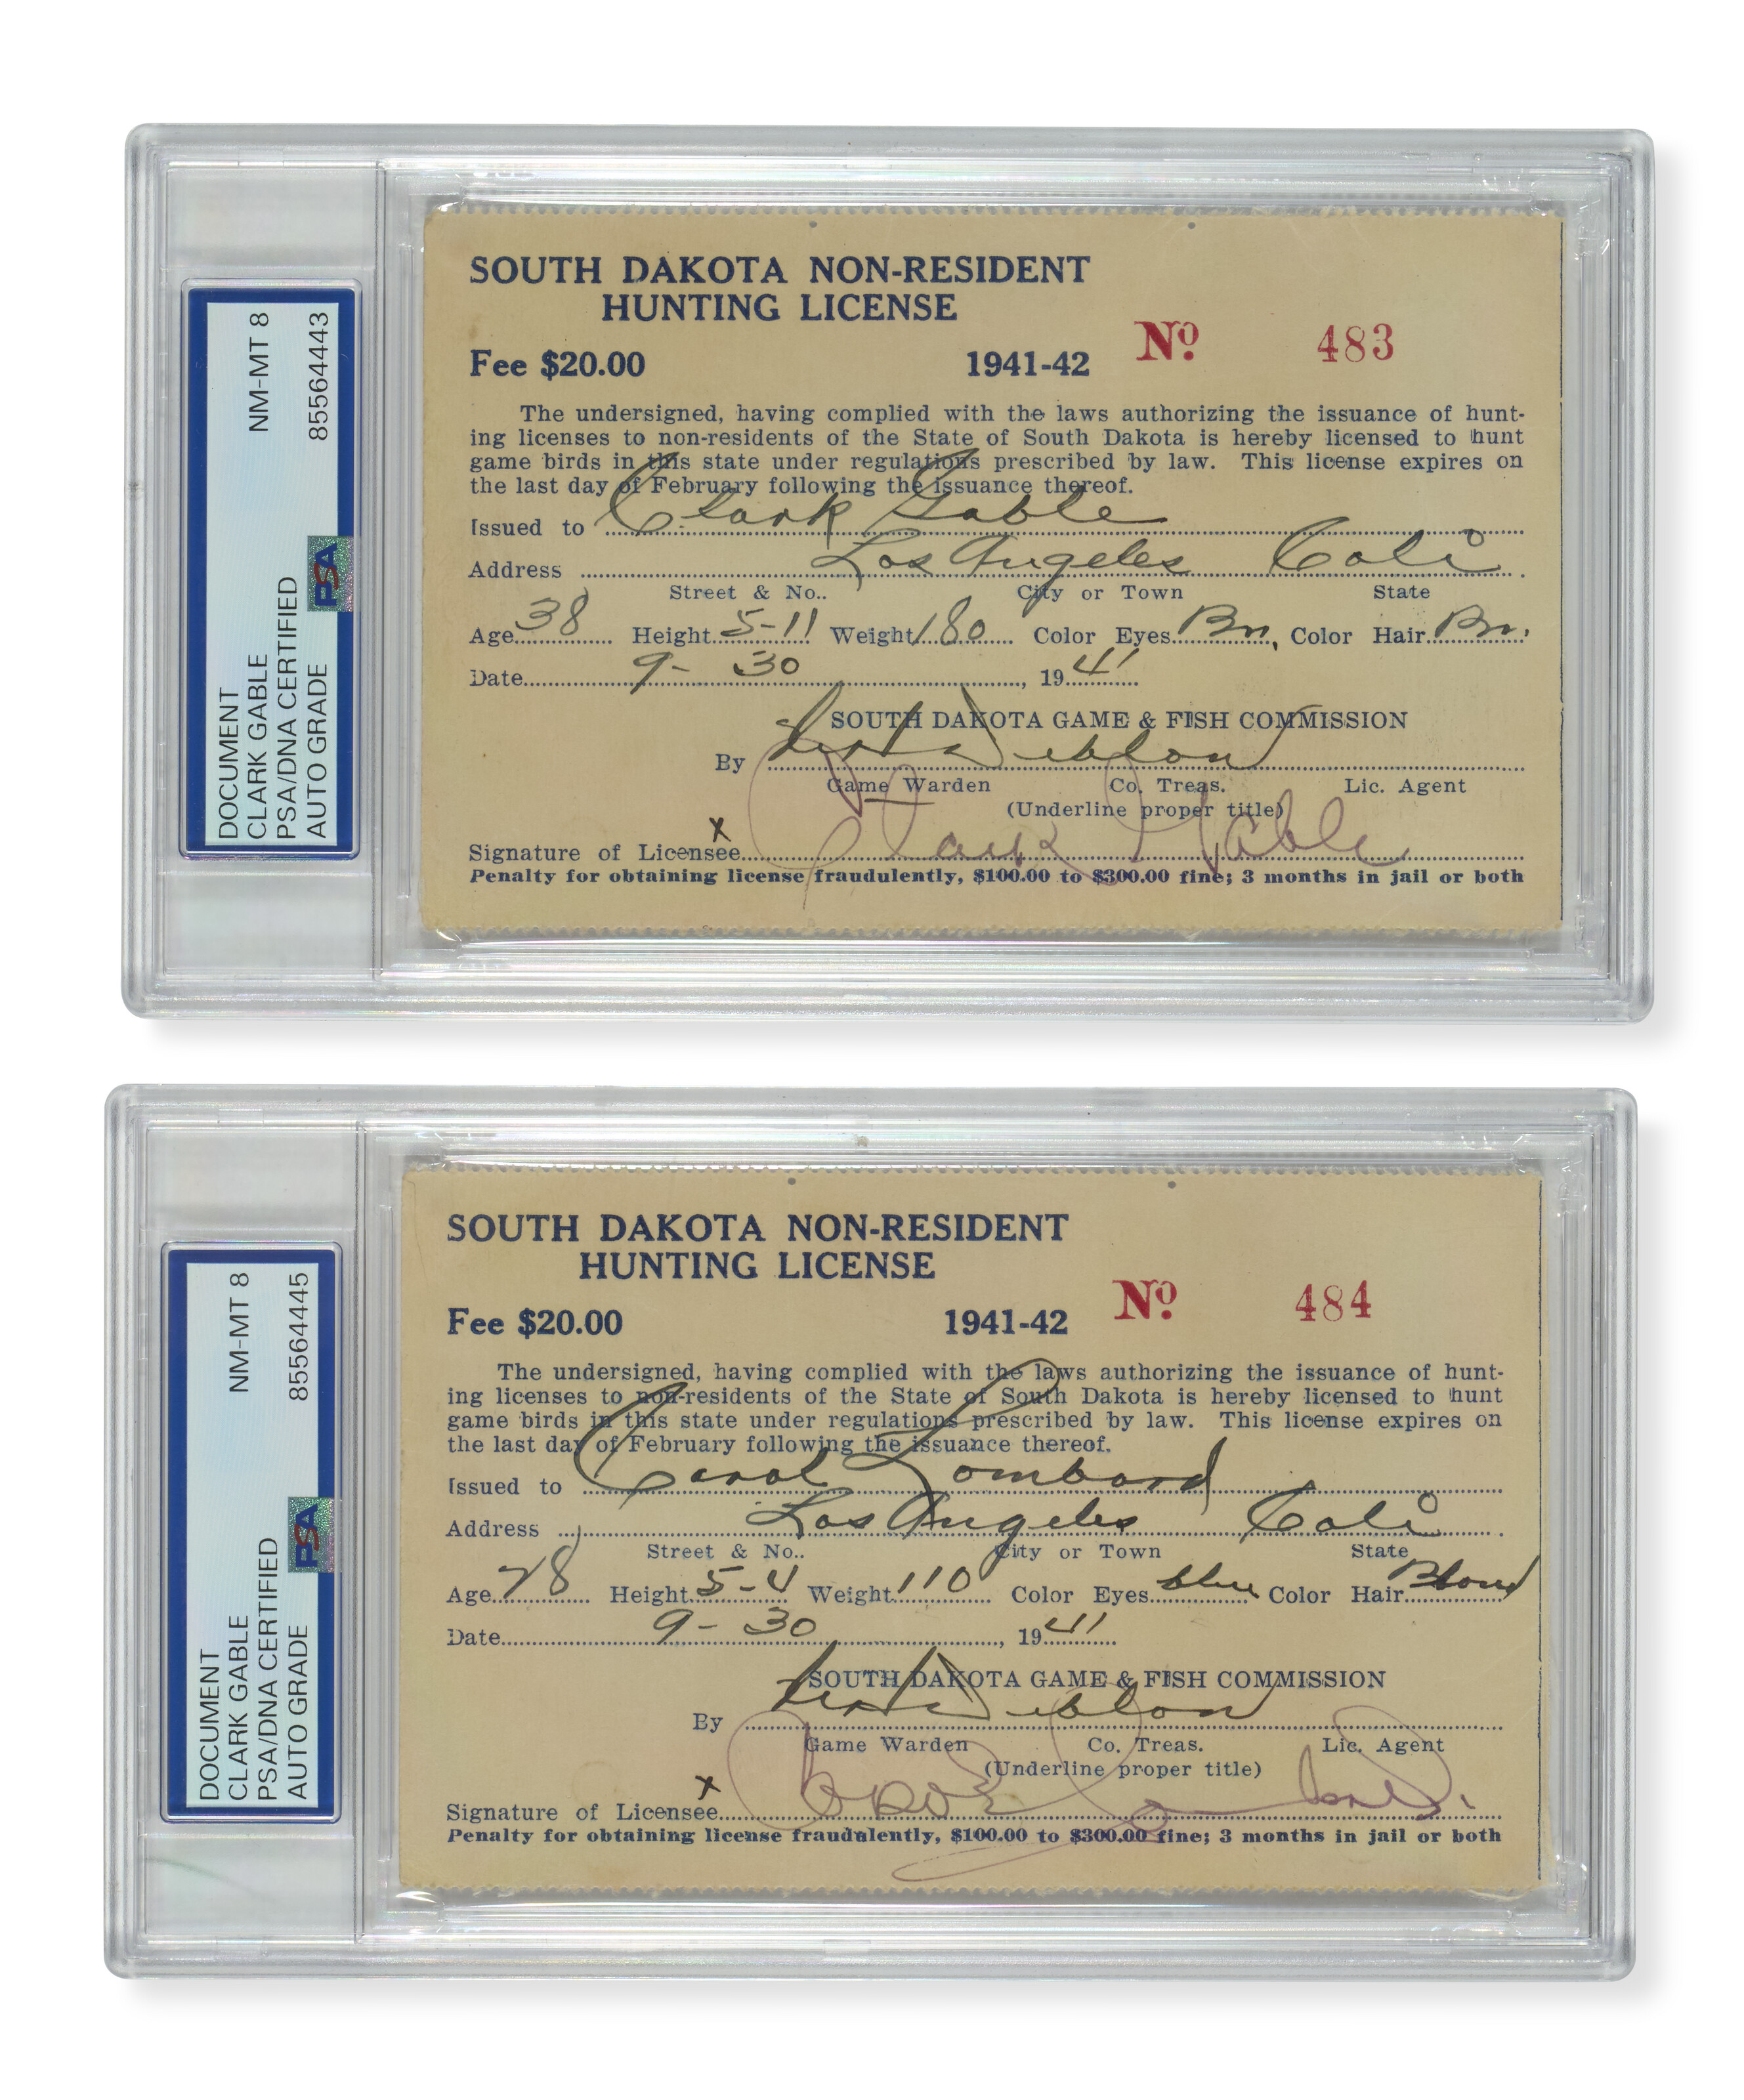 DOCUMENT
CLARK GABLE
PSA/DNA CERTIFIED
AUTO GRADE
NM-MT 8
85564443
PSA
SOUTH DAKOTA NON-RESIDENT
HUNTING LICENSE
Fee $20.00 1941-42 No. 483
The undersigned, having complied with the laws authorizing the issuance of hunt-
ing licenses to non-residents of the State of South Dakota is hereby licensed to hunt
game birds in this state under regulations prescribed by law. This license expires on
the last day of February following the issuance thereof.
Issued to Clark Gable
Address Los Angeles Cali
Street & No.. City or Town State
Age 38 Height 5-11 Weight 180 Color Eyes Bn, Color Hair Bn.
Date 9-30, 1941
SOUTH DAKOTA GAME & FISH COMMISSION
By
Game Warden Co. Treas. Lic. Agent
(Underline proper title)
x
Signature of Licensee Clark Gable
Penalty for obtaining license fraudulently, $100.00 to $300.00 fine; 3 months in jail or both
DOCUMENT
CLARK GABLE
PSA/DNA CERTIFIED
AUTO GRADE
NM-MT 8
85564445
PSA
SOUTH DAKOTA NON-RESIDENT
HUNTING LICENSE
Fee $20.00 1941-42 No. 484
The undersigned, having complied with the laws authorizing the issuance of hunt-
ing licenses to non-residents of the State of South Dakota is hereby licensed to hunt
game birds in this state under regulations prescribed by law. This license expires on
the last day of February following the issuance thereof.
Issued to Carol Lombard
Address Los Angeles Cali
Street & No.. City or Town State
Age 28 Height 5-4 Weight 110 Color Eyes blue Color Hair Blond
Date 9-30, 1941
SOUTH DAKOTA GAME & FISH COMMISSION
By
Game Warden Co. Treas. Lic. Agent
(Underline proper title)
x
Signature of Licensee
Penalty for obtaining license fraudulently, $100.00 to $300.00 fine; 3 months in jail or both